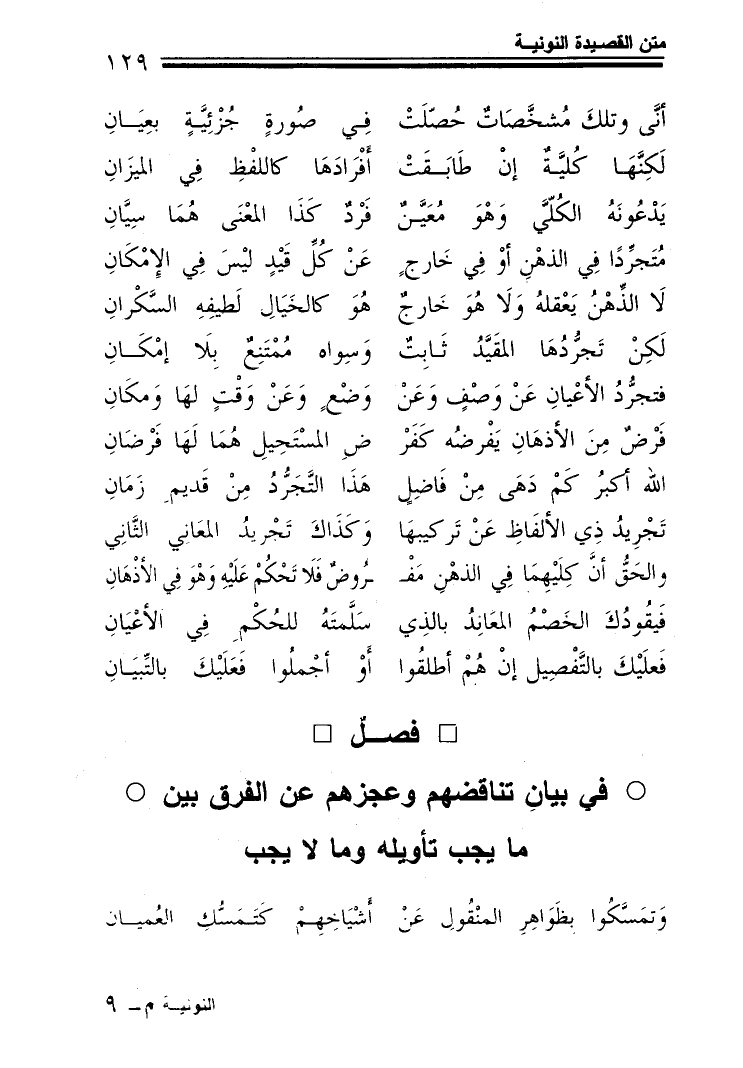 متن القصيدة النونية
١٢٩
أنَّى وتلكَ مُشخَّصَاتٌ حُصّلَتْ في صُورةٍ جُزْئِيَّةٍ بعِيَانِ
لَكِنَّهَا كُليَّةٌ إنْ طَابَقَتْ أَفْرَادَهَا كاللفْظِ فِي الميَزانِ
يَدْعُونَهُ الكُلّيَّ وَهْوَ مُعَيَّنٌ فَرْدٌ كَذَا المعْنَى هُمَا سِيَّانِ
مُتَجرِّدًا فِي الذهْنِ أوْ فِي خَارجٍ عَنْ كُلِّ قَيْدٍ ليْسَ فِي الإمْكَانِ
لَا الذِّهْنُ يَعْقلهُ وَلَا هُوَ خَارجٌ هُوَ كالخَيَالِ لَطيفِهِ السَّكْرانِ
لَكِنْ تَجرُّدُهَا المقيَّدُ ثَابِتٌ وَسِواه مُمْتَنِعٌ بِلَا إمْكَانِ
فتجرُّدُ الأعْيانِ عَنْ وَصْفٍ وَعَنْ وَضْعٍ وَعَنْ وَقْتٍ لهَا وَمكَانِ
فَرْضٌ مِنَ الأذهَانِ يَفْرضُه كَفَرْ ضِ المسْتَحيلِ هُمَا لَهَا فَرْضَانِ
الله أكبرُ كَمْ دَهَى مِنْ فَاضِلٍ هَذَا التَّجَرُّدُ مِنْ قديمِ زَمَانِ
تَجْريدُ ذِي الألفَاظِ عَنْ تَركيبهَا وَكَذَاكَ تَجْريدُ المعَاني الثَّانِي
والحَقُّ أنَّ كِلَيْهِمَا فِي الذهْنِ مَفْـ ـرُوضٌ فَلَا تَحْكُمْ عَلَيْهِ وَهْوَ فِي الأذْهَانِ
فَيقُودُكَ الخَصْمُ المعَانِدُ بالذي سَلَّمتَهُ للحُكْمِ فِي الأعْيَانِ
فَعلَيْكَ بالتَّفْصِيلِ إنْ هُمْ أطلقُوا أوْ أجْملُوا فَعَلَيْكَ بالتِّبيَانِ
□ فصلٌ □
○ في بيانِ تناقضهم وعجزهم عن الفرق بين ○
ما يجب تأويله وما لا يجب
وَتمَسَّكُوا بظَواهِرِ المنْقُولِ عَنْ أشْيَاخِهِمْ كَتَمَسُّكِ العُميانِ
النونية م - ٩